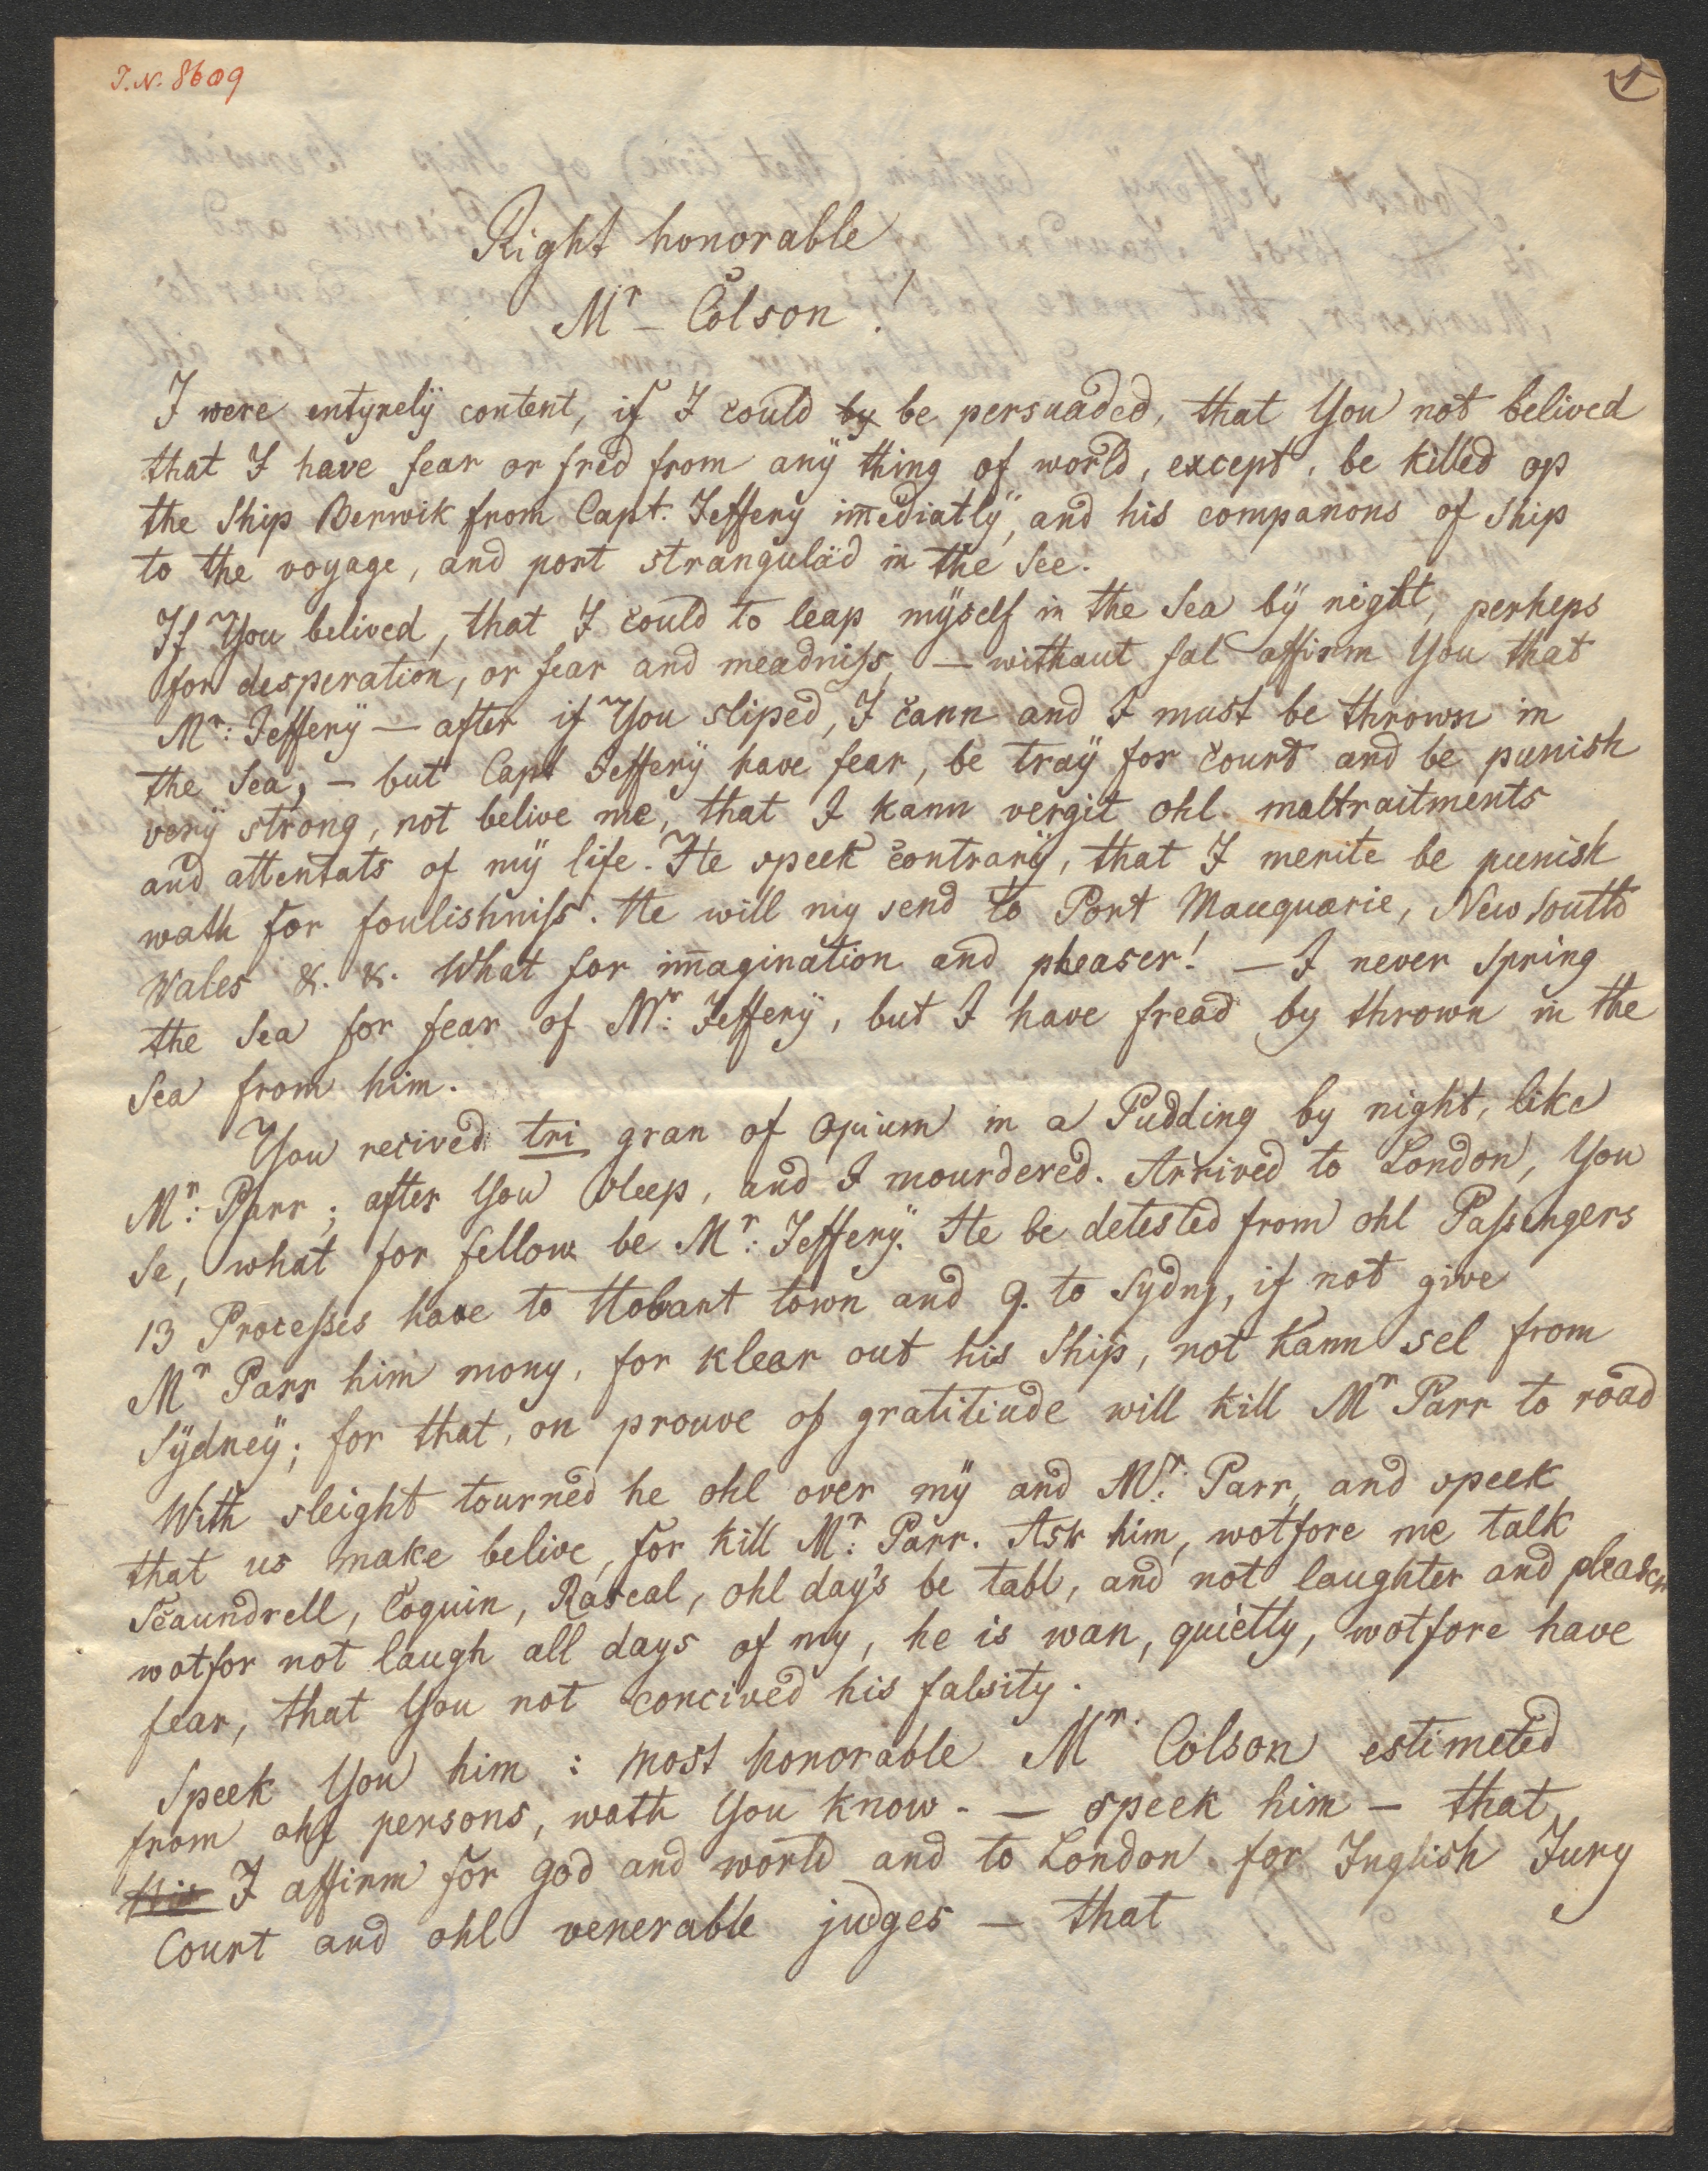 I.N. 8609
1
Right honorable
Mr – Colson !
I were entyrelÿ content, if I could by be persuaded, that You not belived
that I have fear or fred from anÿ thing of world, except, be killed op
the Ship Berwik from Capt. Jefferÿ im̅ediatlÿ, and his companons of Ship
to the voyage, and port strangulàd in the See.
If You belived, that I could to leap mÿself in the Sea bÿ night, perheps
for desperation, or fear and meadniſs, — withaut fal affirm You that
Mr: Jefferÿ — after if You sliped, I cann and I must be thrown in
the Sea, – but Capt Jefferÿ have fear, be traÿ for court and be punish
verÿ strong, not belive me, that I kann vergit ohl. maltraitments
and attentats of mÿ life. He speek contrarÿ, that I merite be punish
wath for foulishniſs. He will my send to Port Mauquarie, New South
Wales &. &. What for im̅agination and pleaser! — I never Spring
the Sea for fear of Mr: Jefferÿ, but I have fread by thrown in the
Sea from him.
You recived tri gran of Opium in a Pudding by night, like
Mr: Parr; after You sleep, and I mourdered. Arrived to London, You
Se, what for fellow be Mr: Jefferÿ. He be detested from ohl Paſsengers
13 Proceſses have to Hobart town and 9. to Sydny, if not give
Mr Parr him mony, for klear out his Ship, not kann sel from
Sÿdneÿ; for that, on prouve of gratitiude will kill Mr Parr to road
With sleight tourned he ohl over mÿ and Mr: Parr, and speek
that us make belive, for kill Mr: Parr. Ask him, wotfore me talk
Scaundrell, Coquin, Rascal, ohl day's be tabl, and not laughter and pleaser
wotfor not laugh all days of my, he is wan, quietly, wotfore have
fear, that You not concived his falsity.
Speek You him : most honorable Mr. Colson estimeted
from ohl persons, wath You know. — speek him – that
I affirm for god and world and to London for Inglish Jury
Court and ohl venerable judges — that